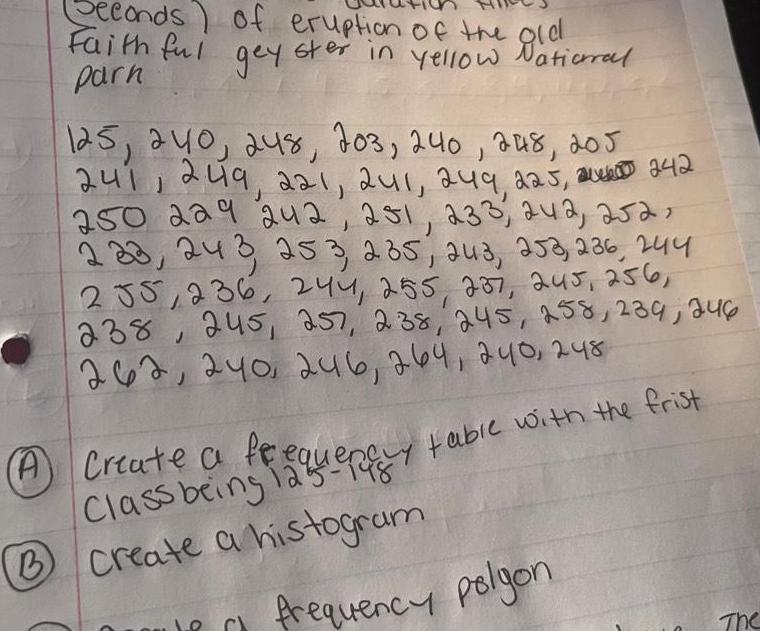 (Seconds) of eruption of the old
Faithful geyster in yellow National
park
125, 240, 248, 203, 240, 248, 205
241, 249, 221, 241, 249, 225, 242
250 229 242, 251, 233, 242, 252,
233, 243, 253, 235, 243, 253, 236, 244
255, 236, 244, 255, 237, 245, 256,
238, 245, 257, 238, 245, 258, 239, 246
262, 240, 246, 264, 240, 248
(A) Create a frequency table with the frist
Class being 125-148
(B) Create a histogram
a frequency polgon
The